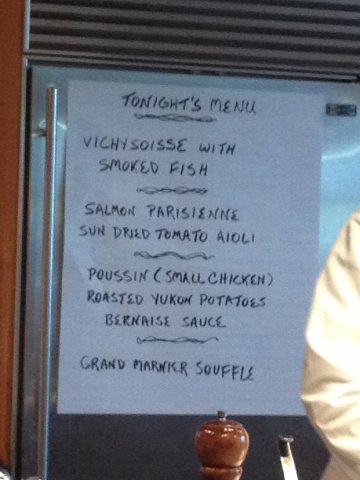 TONIGHT'S MENU
VICHYSOISSE WITH
SMOKED FISH
SALMON PARISIENNE
SUN DRIED TOMATO AIOLI
POUSSIN (SMALL CHICKEN)
ROASTED YUKON POTATOES
BERNAISE SAUCE
GRAND MARNIER SOUFFLE